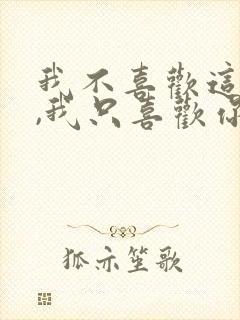 我不喜歡這
,我只喜歡你
狐亦笙歌